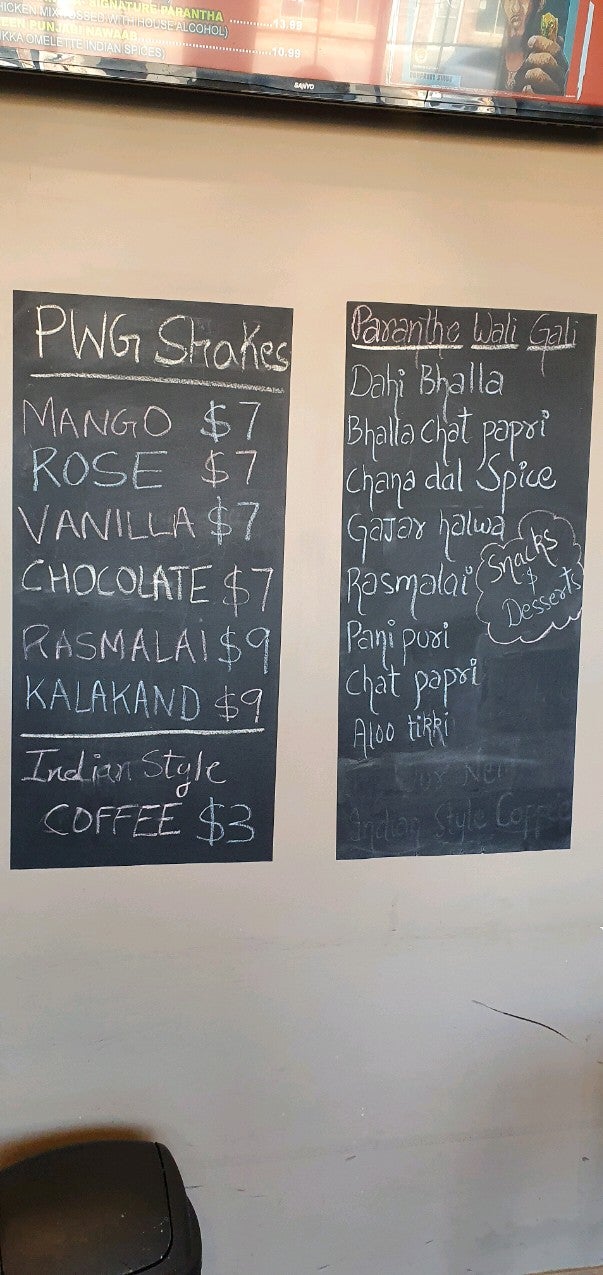 SIGNATURE PARANTHA
HICKEN MIX TOSSED WITH HOUSE ALCOHOL) ............13.99
EEN PUNJABI NAWAAB
KKA OMELETTE INDIAN SPICES) ............10.99
SANYO
PWG Shakes
MANGO $7
ROSE $7
VANILLA $7
CHOCOLATE $7
RASMALAI $9
KALAKAND $9
Indian Style
COFFEE $3
Paranthe Wali Gali
Dahi Bhalla
Bhalla Chat papri
Chana dal Spice
Gajar halwa
Rasmalai
Pani puri
Chat papri
Aloo tikki
Snacks
$
Desserts
Our New
Indian Style Coffee